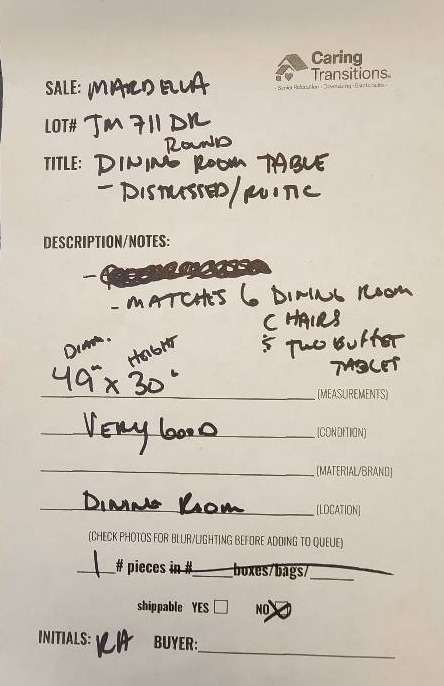 Caring
Transitions®
Senior Relocation · Downsizing · Estate Sales
SALE: MARDELLA
LOT# JM 711 DR
ROUND
TITLE: DINING ROOM TABLE
- DISTRESSED/RUITIC
DESCRIPTION/NOTES:
- MATCHES 6 DINING ROOM
CHAIRS
& TWO BUFFET
TABLES
DIAM. HEIGHT
49" x 30"
(MEASUREMENTS)
VERY GOOD (CONDITION)
(MATERIAL/BRAND)
DINING ROOM (LOCATION)
(CHECK PHOTOS FOR BLUR/LIGHTING BEFORE ADDING TO QUEUE)
1 # pieces in # boxes/bags/
shippable YES NO
INITIALS: RA BUYER: